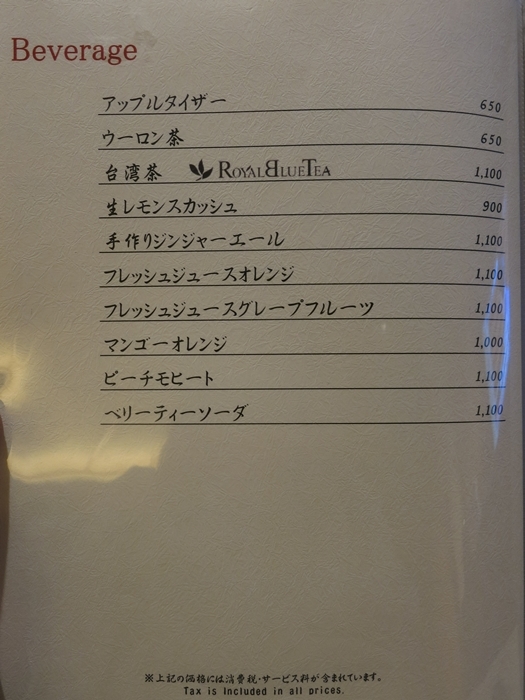 Beverage
アップルタイザー 650
ウーロン茶 650
台湾茶 ROYALBLUETEA 1,100
生レモンスカッシュ 900
手作りジンジャーエール 1,100
フレッシュジュースオレンジ 1,100
フレッシュジュースグレープフルーツ 1,100
マンゴーオレンジ 1,000
ピーチモヒート 1,100
ベリーティーソーダ 1,100
※上記の価格には消費税・サービス料が含まれています。
Tax is Included in all prices.